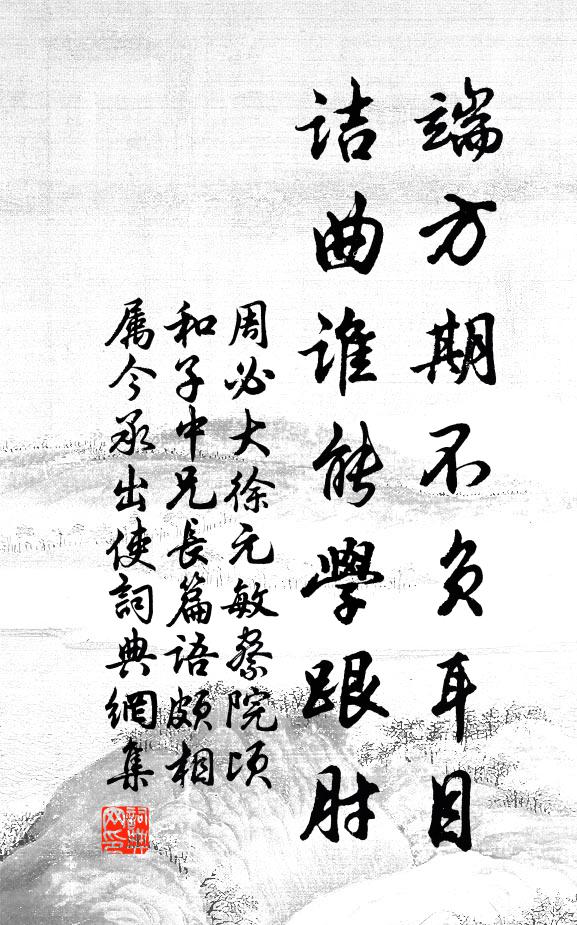 端方期不负耳目
诘曲谁能學跟肘
周必大徐元敏察院顷
和子中兄長篇语颇相
属今承出使詞典網集